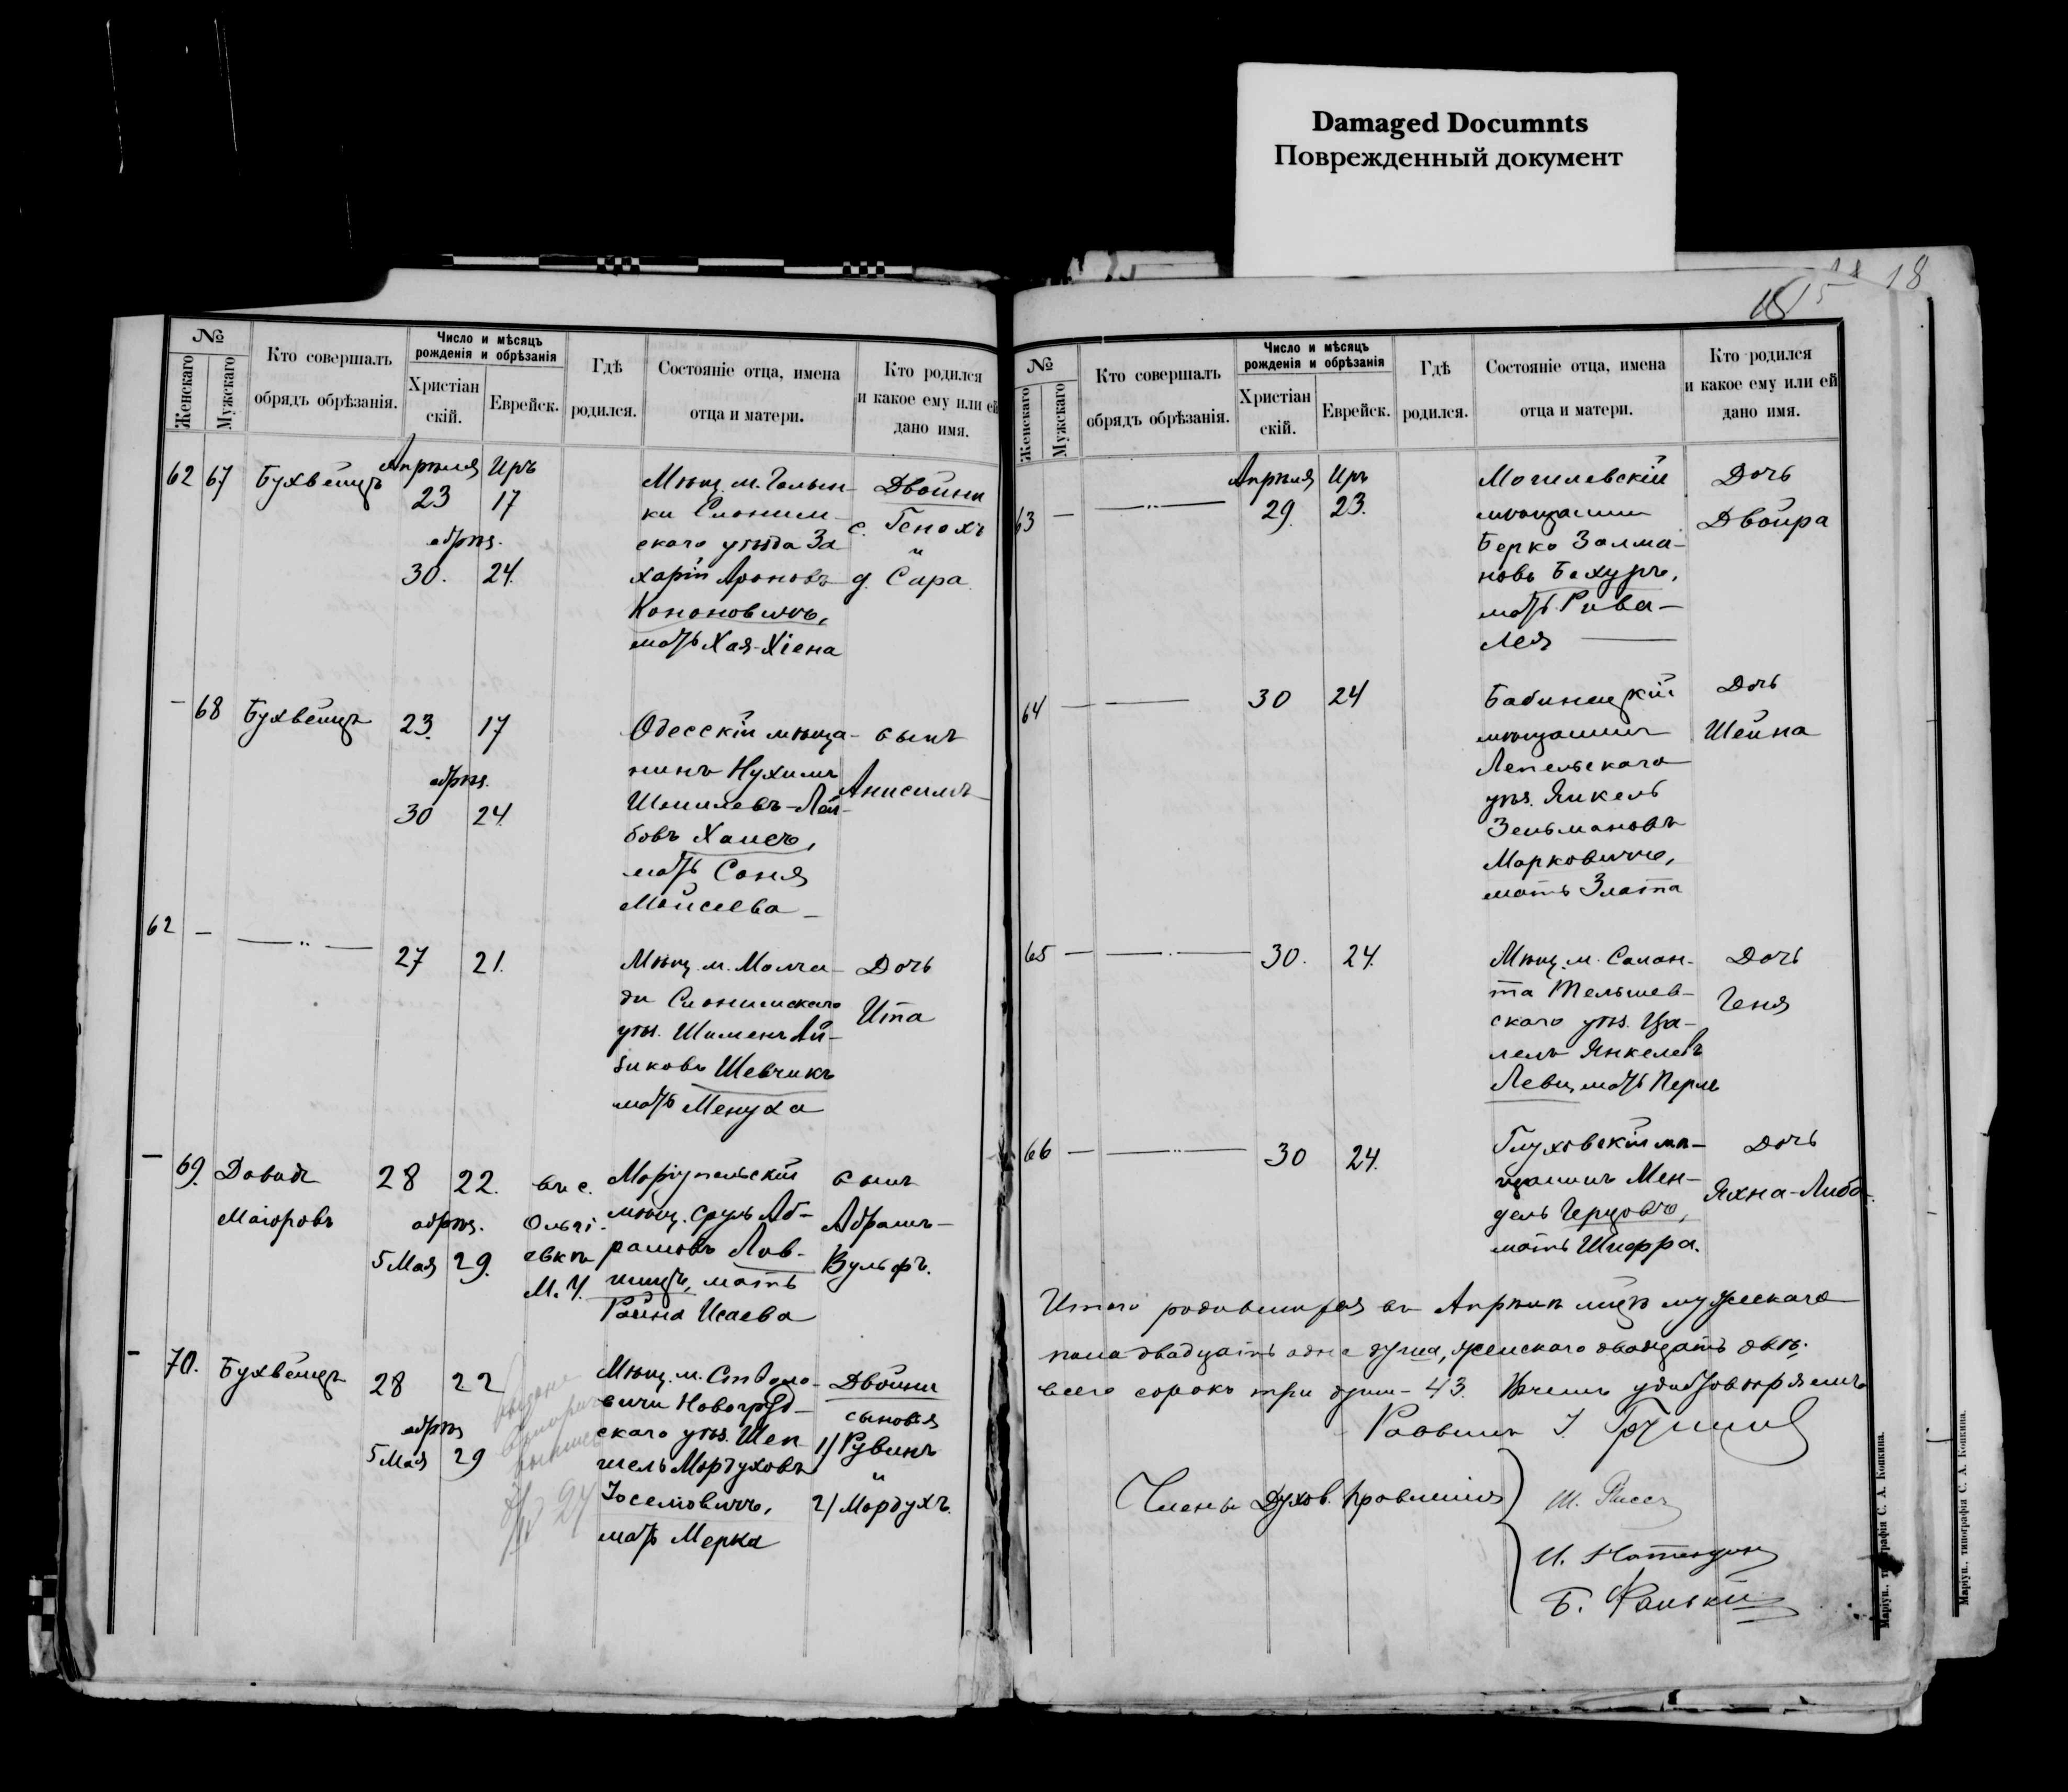 Damaged Documnts
Поврежденный документ
18
15
№
Женскаго
Мужскаго
Кто совершалъ
обрядъ обрѣзанія.
Число и мѣсяцъ
рожденія и обрѣзанія
Христіан
скій.
Еврейск.
Гдѣ
родился.
Состояніе отца, имена
отца и матери.
Кто родился
и какое ему или ей
дано имя.
62 67 Бухвейцъ
Апрѣля Иръ
23 17
обрѣз.
30. 24.
Мѣщ. м. Голын-
ки Слоним-
скаго уѣзда За
харій Ароновъ
Кононовичъ,
мать Хая-Хіена
Двойни
с. Генохъ
и
д. Сара
- 68 Бухвейцъ
23. 17
обрѣз.
30 24
Одесскій мѣща-
нинъ Нухимъ
Шмилевъ-Лей-
бовъ Хаисъ,
мать Соня
Мойсеева
сынъ
Анисимъ
62 -
27 21.
Мѣщ. м. Молча-
ди Слонимскаго
уѣз. Шименъ Ай-
зиковъ Шевчикъ
мать Менуха
Дочь
Ита
- 69. Давидъ
Маіоровъ
28 22.
обрѣз.
5 Мая 29.
въ с.
Ольгі-
евкѣ
М. У.
Маріупольскій
мѣщ. Сруль Аб-
рамовъ Лов-
шицъ, мать
Райна Исаева
сынъ
Абрамъ-
Вульфъ.
- 70. Бухвейцъ
28 22
обрѣз
5 Мая 29
Мѣщ. м. Столо-
вичи Новогруд-
скаго уѣз. Шеп
шель Мордуховъ
Іоселіовичъ,
мать Мерка
Двойни
сыновья
1) Рувинъ
и
2) Мордухъ.
№
Женскаго
Мужскаго
Кто совершалъ
обрядъ обрѣзанія.
Число и мѣсяцъ
рожденія и обрѣзанія
Христіан
скій.
Еврейск.
Гдѣ
родился.
Состояніе отца, имена
отца и матери.
Кто родился
и какое ему или ей
дано имя.
63 -
Апрѣля Иръ
29. 23.
Могилевскій
мѣщанинъ
Берко Залма-
новъ Бахуръ,
мать Рива-
Лея
Дочь
Двойра
64 -
30 24
Бабиницкій
мѣщанинъ
Лепельскаго
уѣз. Янкель
Зельмановъ
Марковичъ,
мать Злата
Дочь
Шейна
65 -
30. 24.
Мѣщ. м. Салан-
та Тельшев-
скаго уѣз. Ца-
лелъ Янкелевъ
Левы, мать Перль
Дочь
Геня
66 -
30 24.
Глуховскій мѣ-
щанинъ Мен-
дель Герцовъ,
мать Шифра.
Дочь
Яхна-Либа.
Итого родившихся въ Апрѣлѣ мѣсцѣ мужескаго
пола двадцать одна душа, женскаго двадцать двѣ.
всего сорокъ три души - 43. Въ чемъ удостовѣряемъ
Раввинъ
Члены Духов. Правленія
Маріуп., типографія С. А. Копкина.
Маріуп., типографія С. А. Копкина.